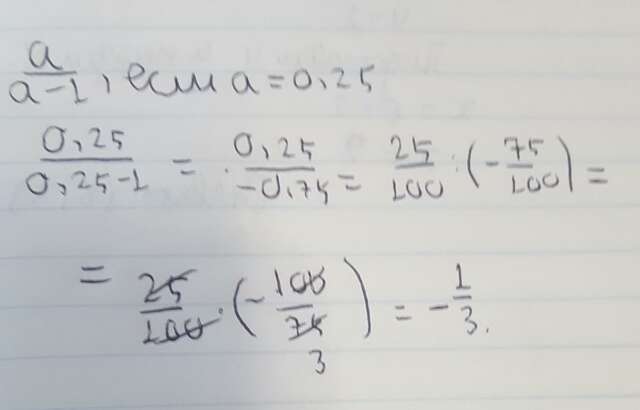 a/(a-1), если a=0,25
0,25/(0,25-1) = 0,25/(-0,75) = 25/100 : (-75/100) =
= 25/100 · (-100/75) = -1/3.
3